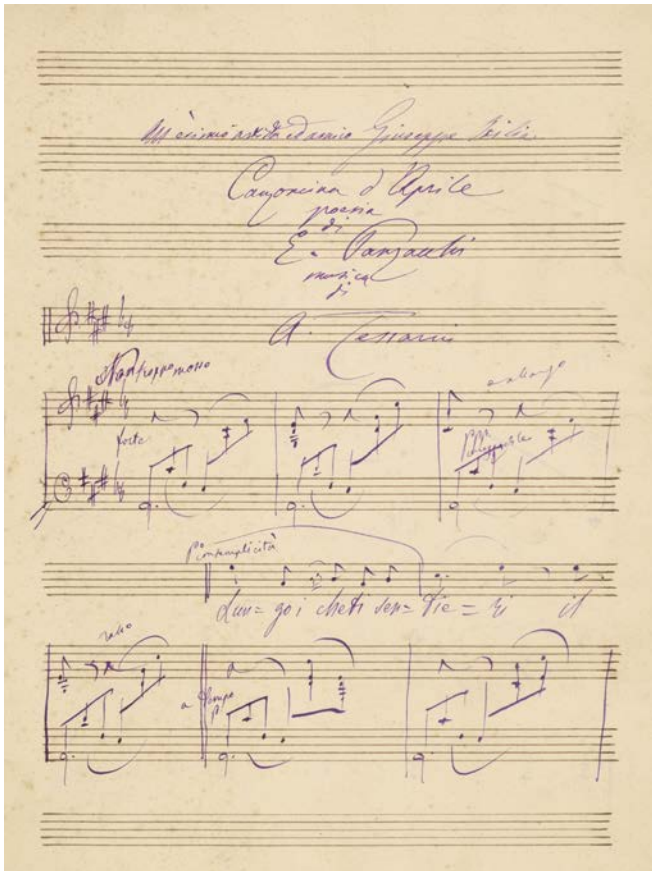 All'esimio artista ed amico Giuseppe
Canzoncina d'Aprile
poesia
di
E. Panzacchi
musica
di
A. Tessarin
Non troppo mosso
forte
P. con semplicità
Lun= go i cheti sen= tie= ri il
a tempo
P.